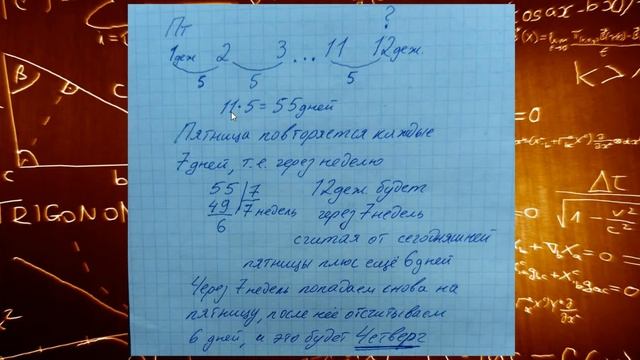 ?
Пт
1деж 2 3 ... 11 12деж.
5 5 5
11·5=55дней
Пятница повторяется каждые
7дней, т.е. через неделю
55 | 7 12деж будет
49 | 7недель через 7недель
6
считая от сегодняшней
пятницы плюс ещё 6дней
Через 7недель попадаем снова на
пятницу, после неё отсчитываем
6 дней, и это будет Четверг
c
b
TRIGONO
K>
=0
ΔT
=0